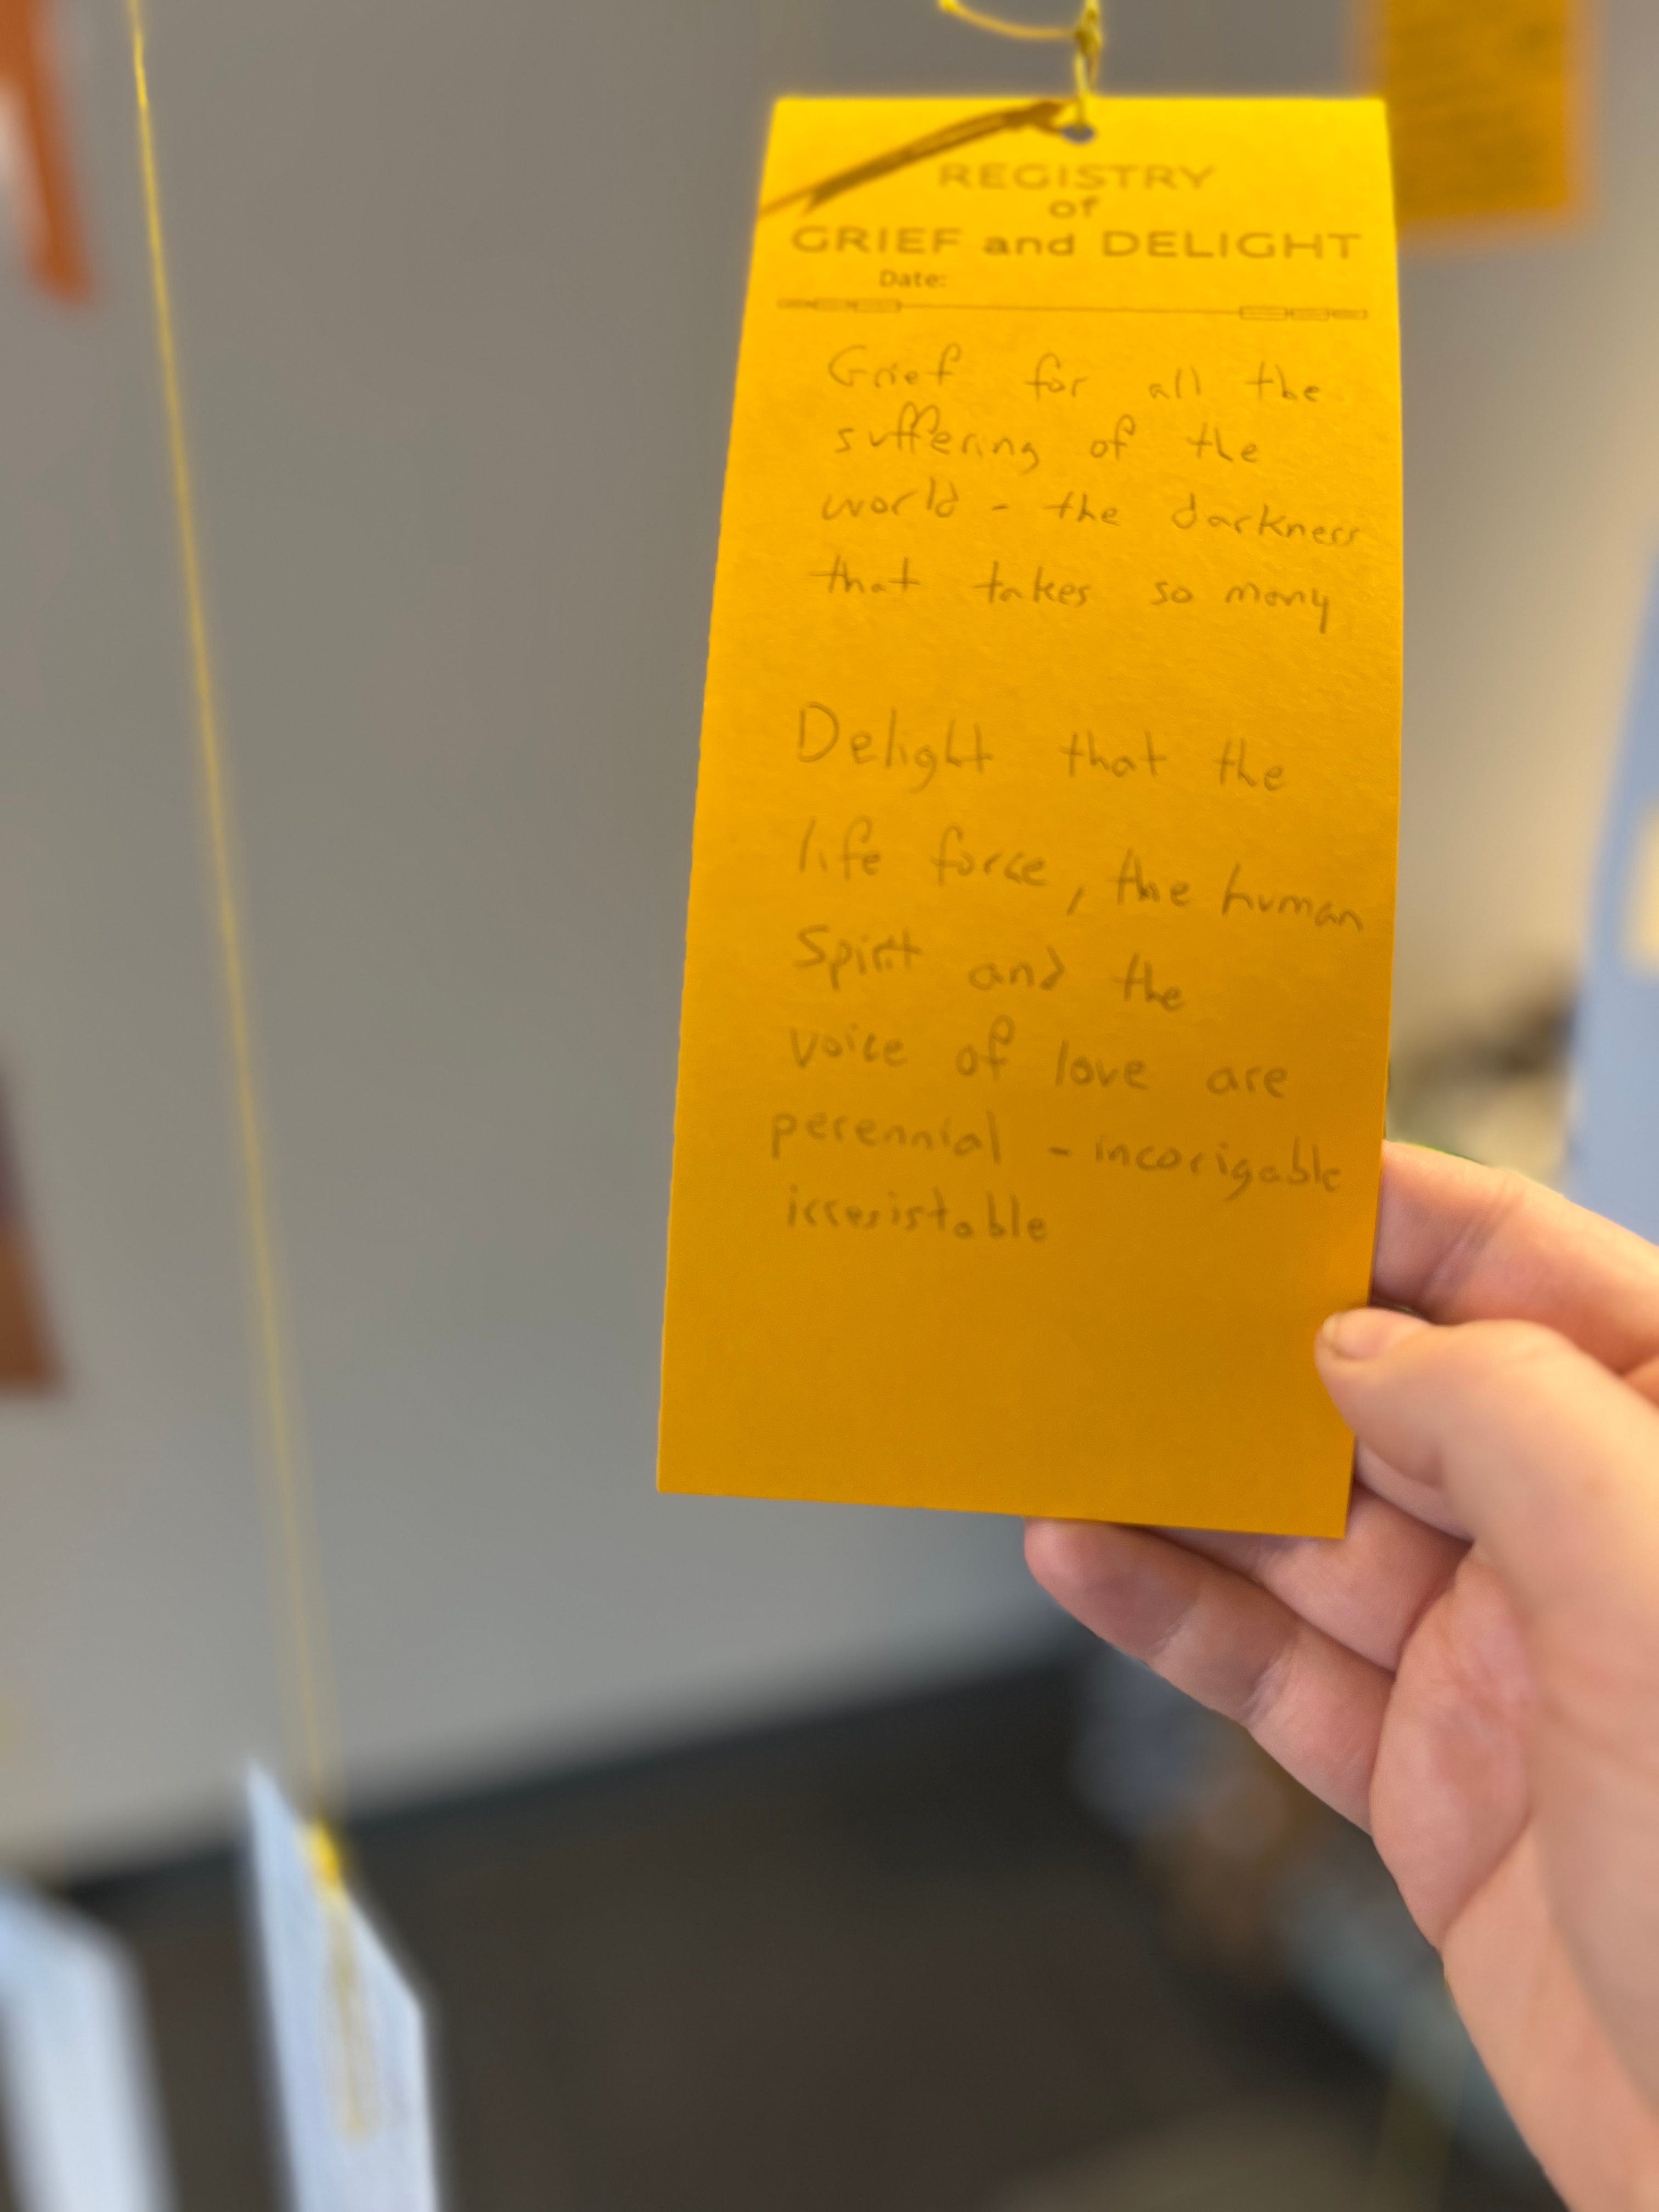 REGISTRY
of
GRIEF and DELIGHT
Date:
Grief for all the
suffering of the
world - the darkness
that takes so many
Delight that the
life force, the human
Spirit and the
voice of love are
perennial - incorigable
irresistable